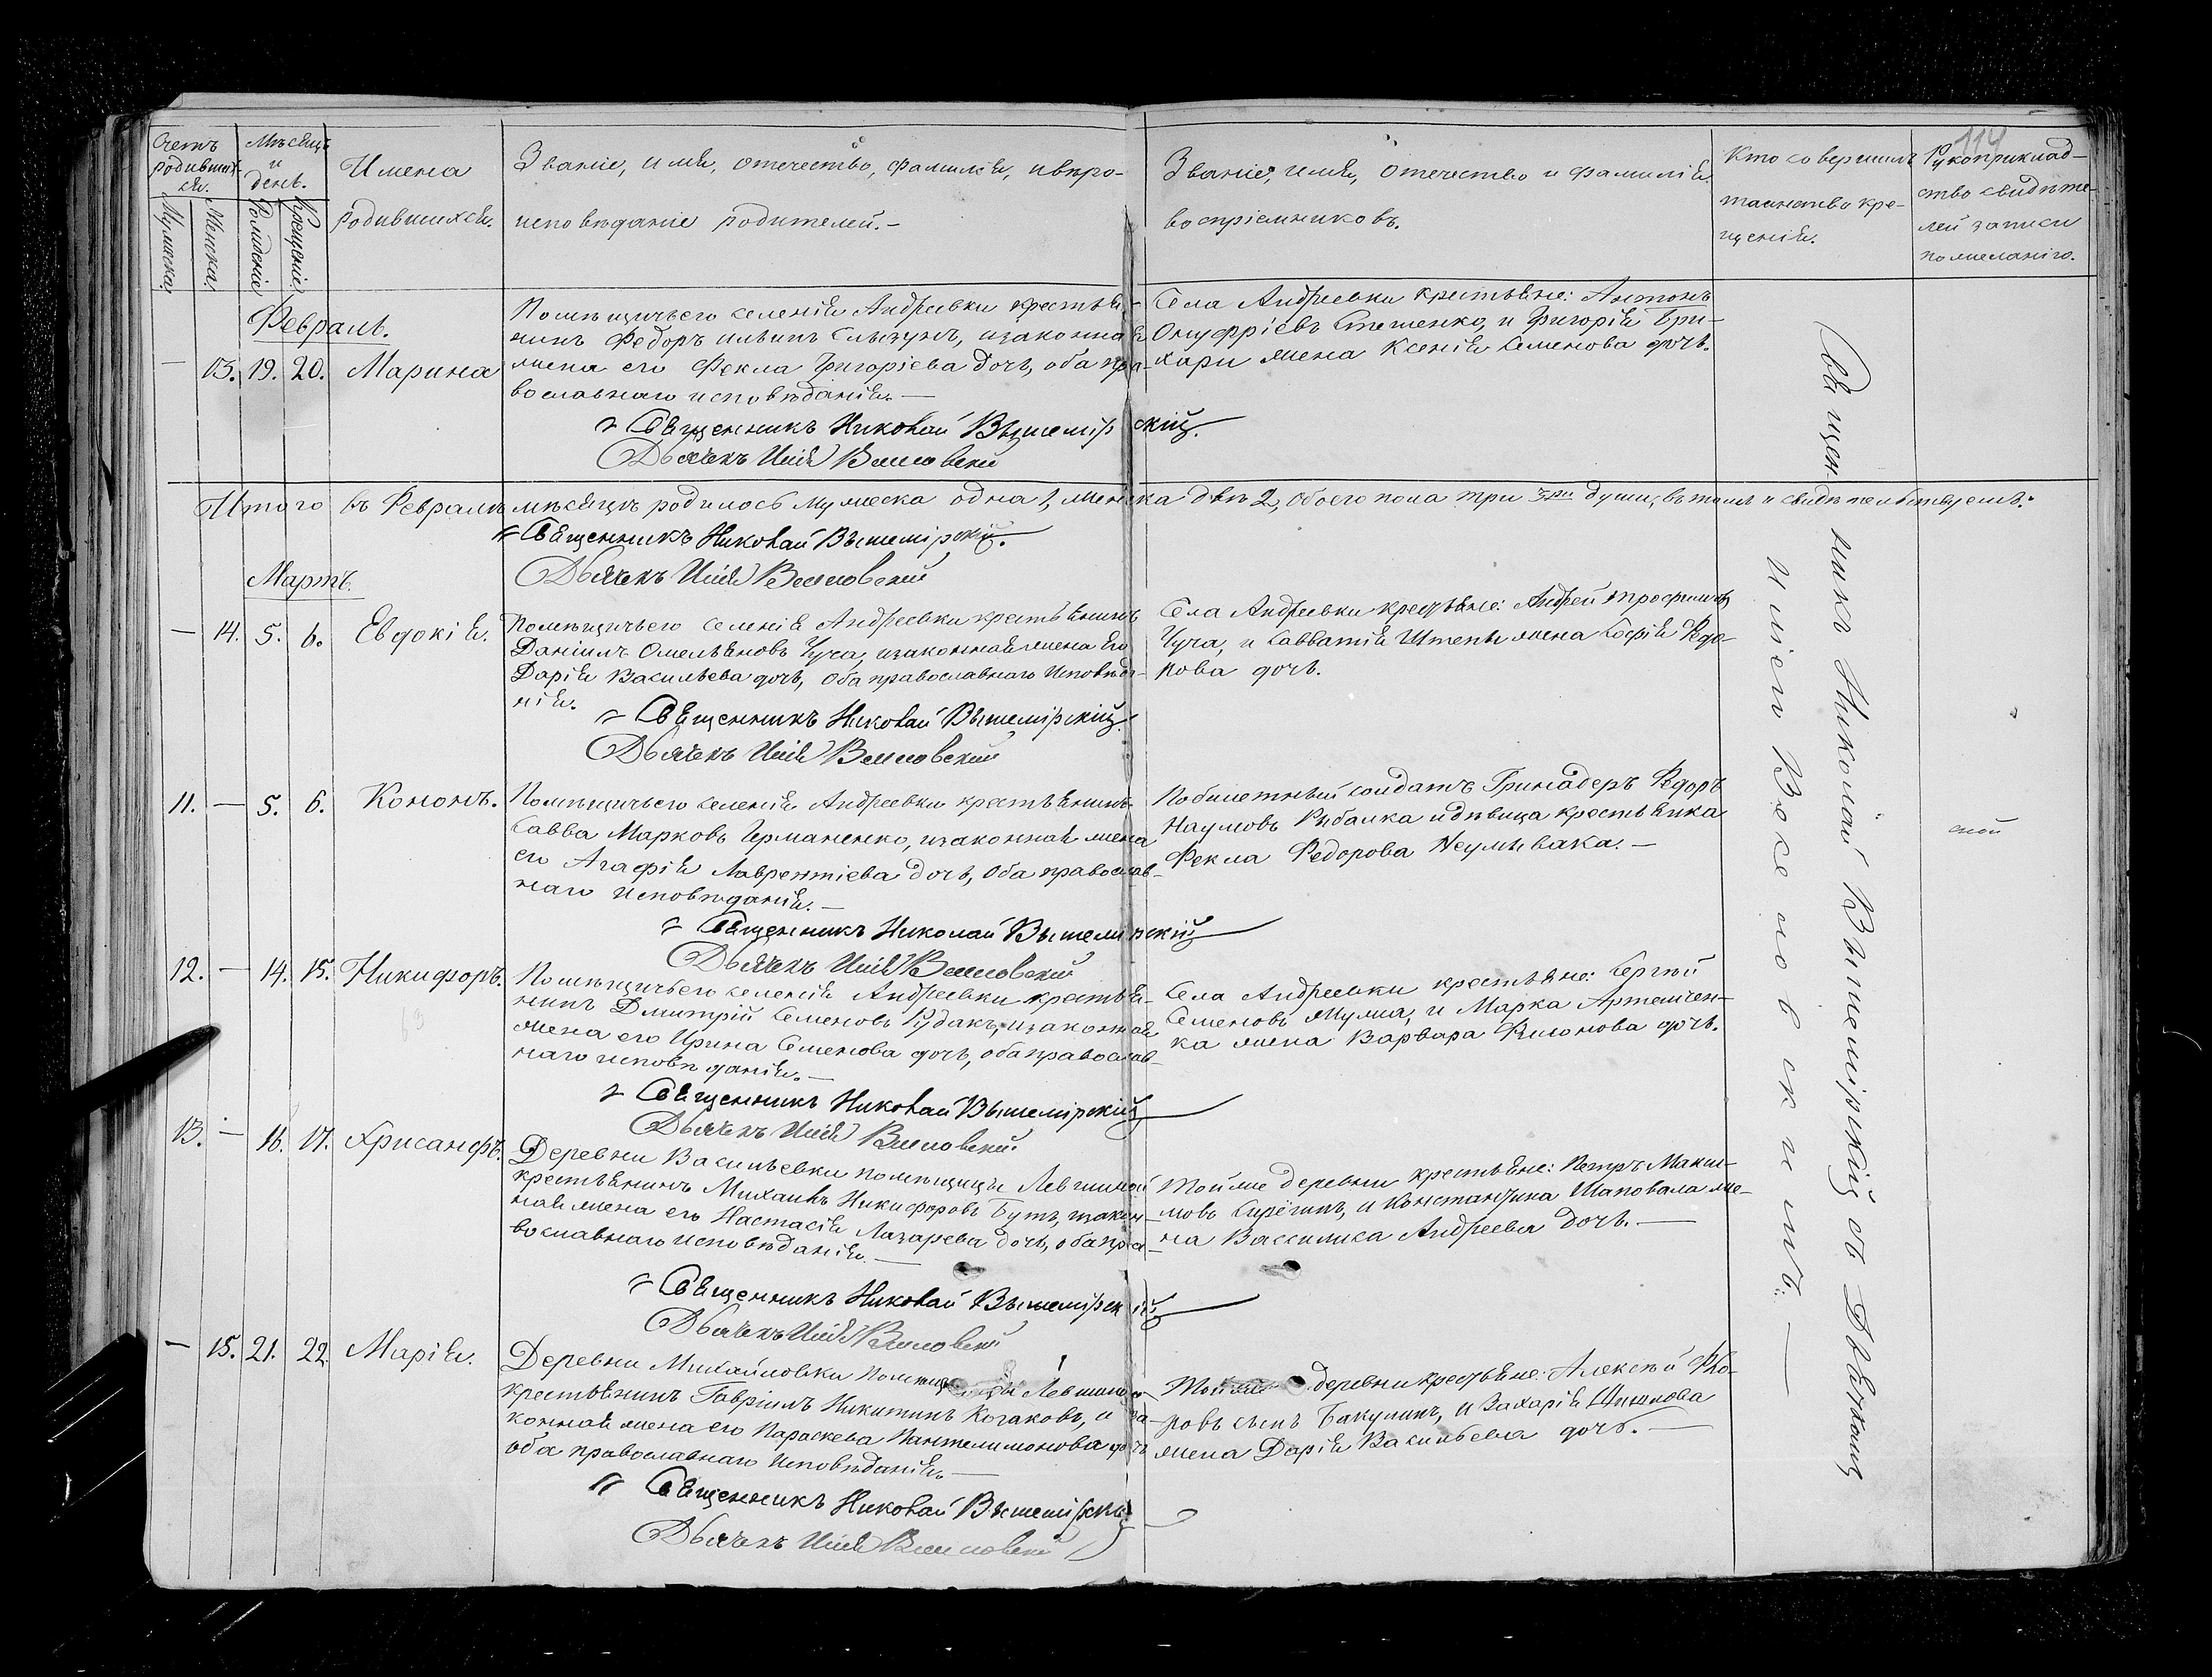 114
Счетъ родившихся.
Мужеска.
Женска.
Мѣсяцъ и день.
Рожденіе
Крещеніе
Имена
родившихся.
Званіе, имя, отечество, фамилія, и вѣро-
исповѣданіе родителей.-
Званіе, имя, отечество и фамилія
воспріемниковъ.
Кто совершилъ
таинство кре-
щенія.
Рукоприклад-
ство свидѣте-
лей записи
по желанію.
Февраль.
— 13. 19. 20. Марина
Помѣщичьего селенія Андреевки крестья-
нинъ Федоръ Ильинъ, изаконная
жена его Фекла Григоріева дочь, оба пра-
вославнаго исповѣданія.—
Священникъ Николай Вышемірскій.
Дьячекъ Илія
Села Андреевки крестьяне: Антонъ
Онуфріевъ Стешенко, и Григорія Гри-
хари жена Ксенія Семенова дочь.
Итого въ Февралѣ мѣсяцѣ родилось мужеска одна 1, женска двѣ 2, обоего пола три три души, въ томъ и свидѣтельствуемъ:
Священникъ Николай Вышемірскій.
Дьячекъ Илія
Мартъ.
— 14. 5. 6. Евдокія.
Помѣщичьего селенія Андреевки крестьянинъ
Даніилъ Омельяновъ Чуча, изаконная жена его
Дарія Васильева дочь, оба православнаго исповѣда-
нія.
Священникъ Николай Вышемірскій
Дьячекъ Илія
Села Андреевки крестьяне: Андрей Трофимовъ
Чуча, и Савватія жена Софія Ѳедо-
рова дочь.
11. — 5. 6. Кононъ.
Помѣщичьего селенія Андреевки крестьянинъ
Савва Марковъ Германенко, изаконная жена
его Агафія Лаврентіева дочь, оба православ-
наго исповѣданія.—
Священникъ Николай Вышемірскій
Дьячекъ Илія
Побилетный солдатъ Гринадеръ Ѳедоръ
Наумовъ Рыбалка и дѣвица крестьянка
Фекла Федорова Неумывака.—
12. — 14. 15. Никифоръ.
Помѣщичьего селенія Андреевки крестья-
нинъ Дмитрій Семеновъ Рудакъ, изаконная
жена его Ирина Семенова дочь, оба православ-
наго исповѣданія.—
Священникъ Николай Вышемірскій
Дьячекъ Илія
Села Андреевки крестьяне: Сергѣй
Семеновъ, и Марка Артемчен-
ка жена Варвара Филонова дочь.
13. — 16. 17. Хрисанфъ.
Деревни Васильевки помѣщицы Левшиной
крестьянинъ Михаилъ Никифоровъ Бутъ, изакон-
ная жена его Настасія Лазарева дочь, оба пра-
вославнаго исповѣданія.—
Священникъ Николай Вышемірскій
Дьячекъ Илія
Тойже деревни крестьяне: Петръ Макси-
мовъ, и Константина Шаповала же-
на Василиса Андреева дочь.—
— 15. 21. 22. Марія.
Деревни Михайловки помѣщицы Левшиной
крестьянинъ Гавріилъ Никитинъ Козаковъ, и за-
конная жена его Параскева Пантелимонова дочь
оба православнаго исповѣданія.—
Священникъ Николай Вышемірскій
Дьячекъ Илія
Тойже деревни крестьяне: Алексѣй
ровъ сынъ Бакулинъ, и Захарія
жена Дарія Васильева дочь.—
Священникъ Николай Вышемірскій съ Дьячкомъ
Иліею